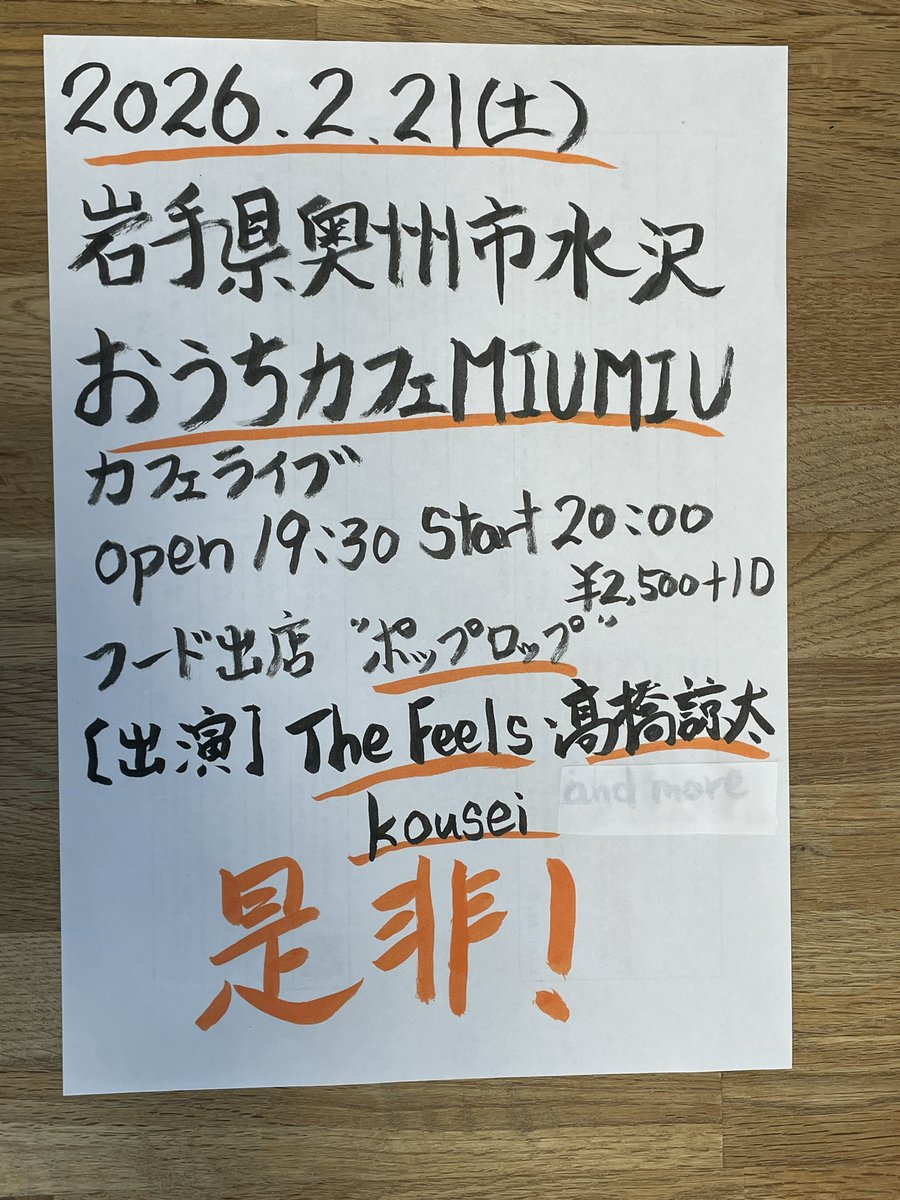 2026.2.21(土)
岩手県奥州市水沢
おうちカフェMIUMIU
カフェライブ
open 19:30 Start 20:00
¥2,500+1D
フード出店 "ポップロップ"
[出演] The Feels 高橋諒太
kousei and more
是非!